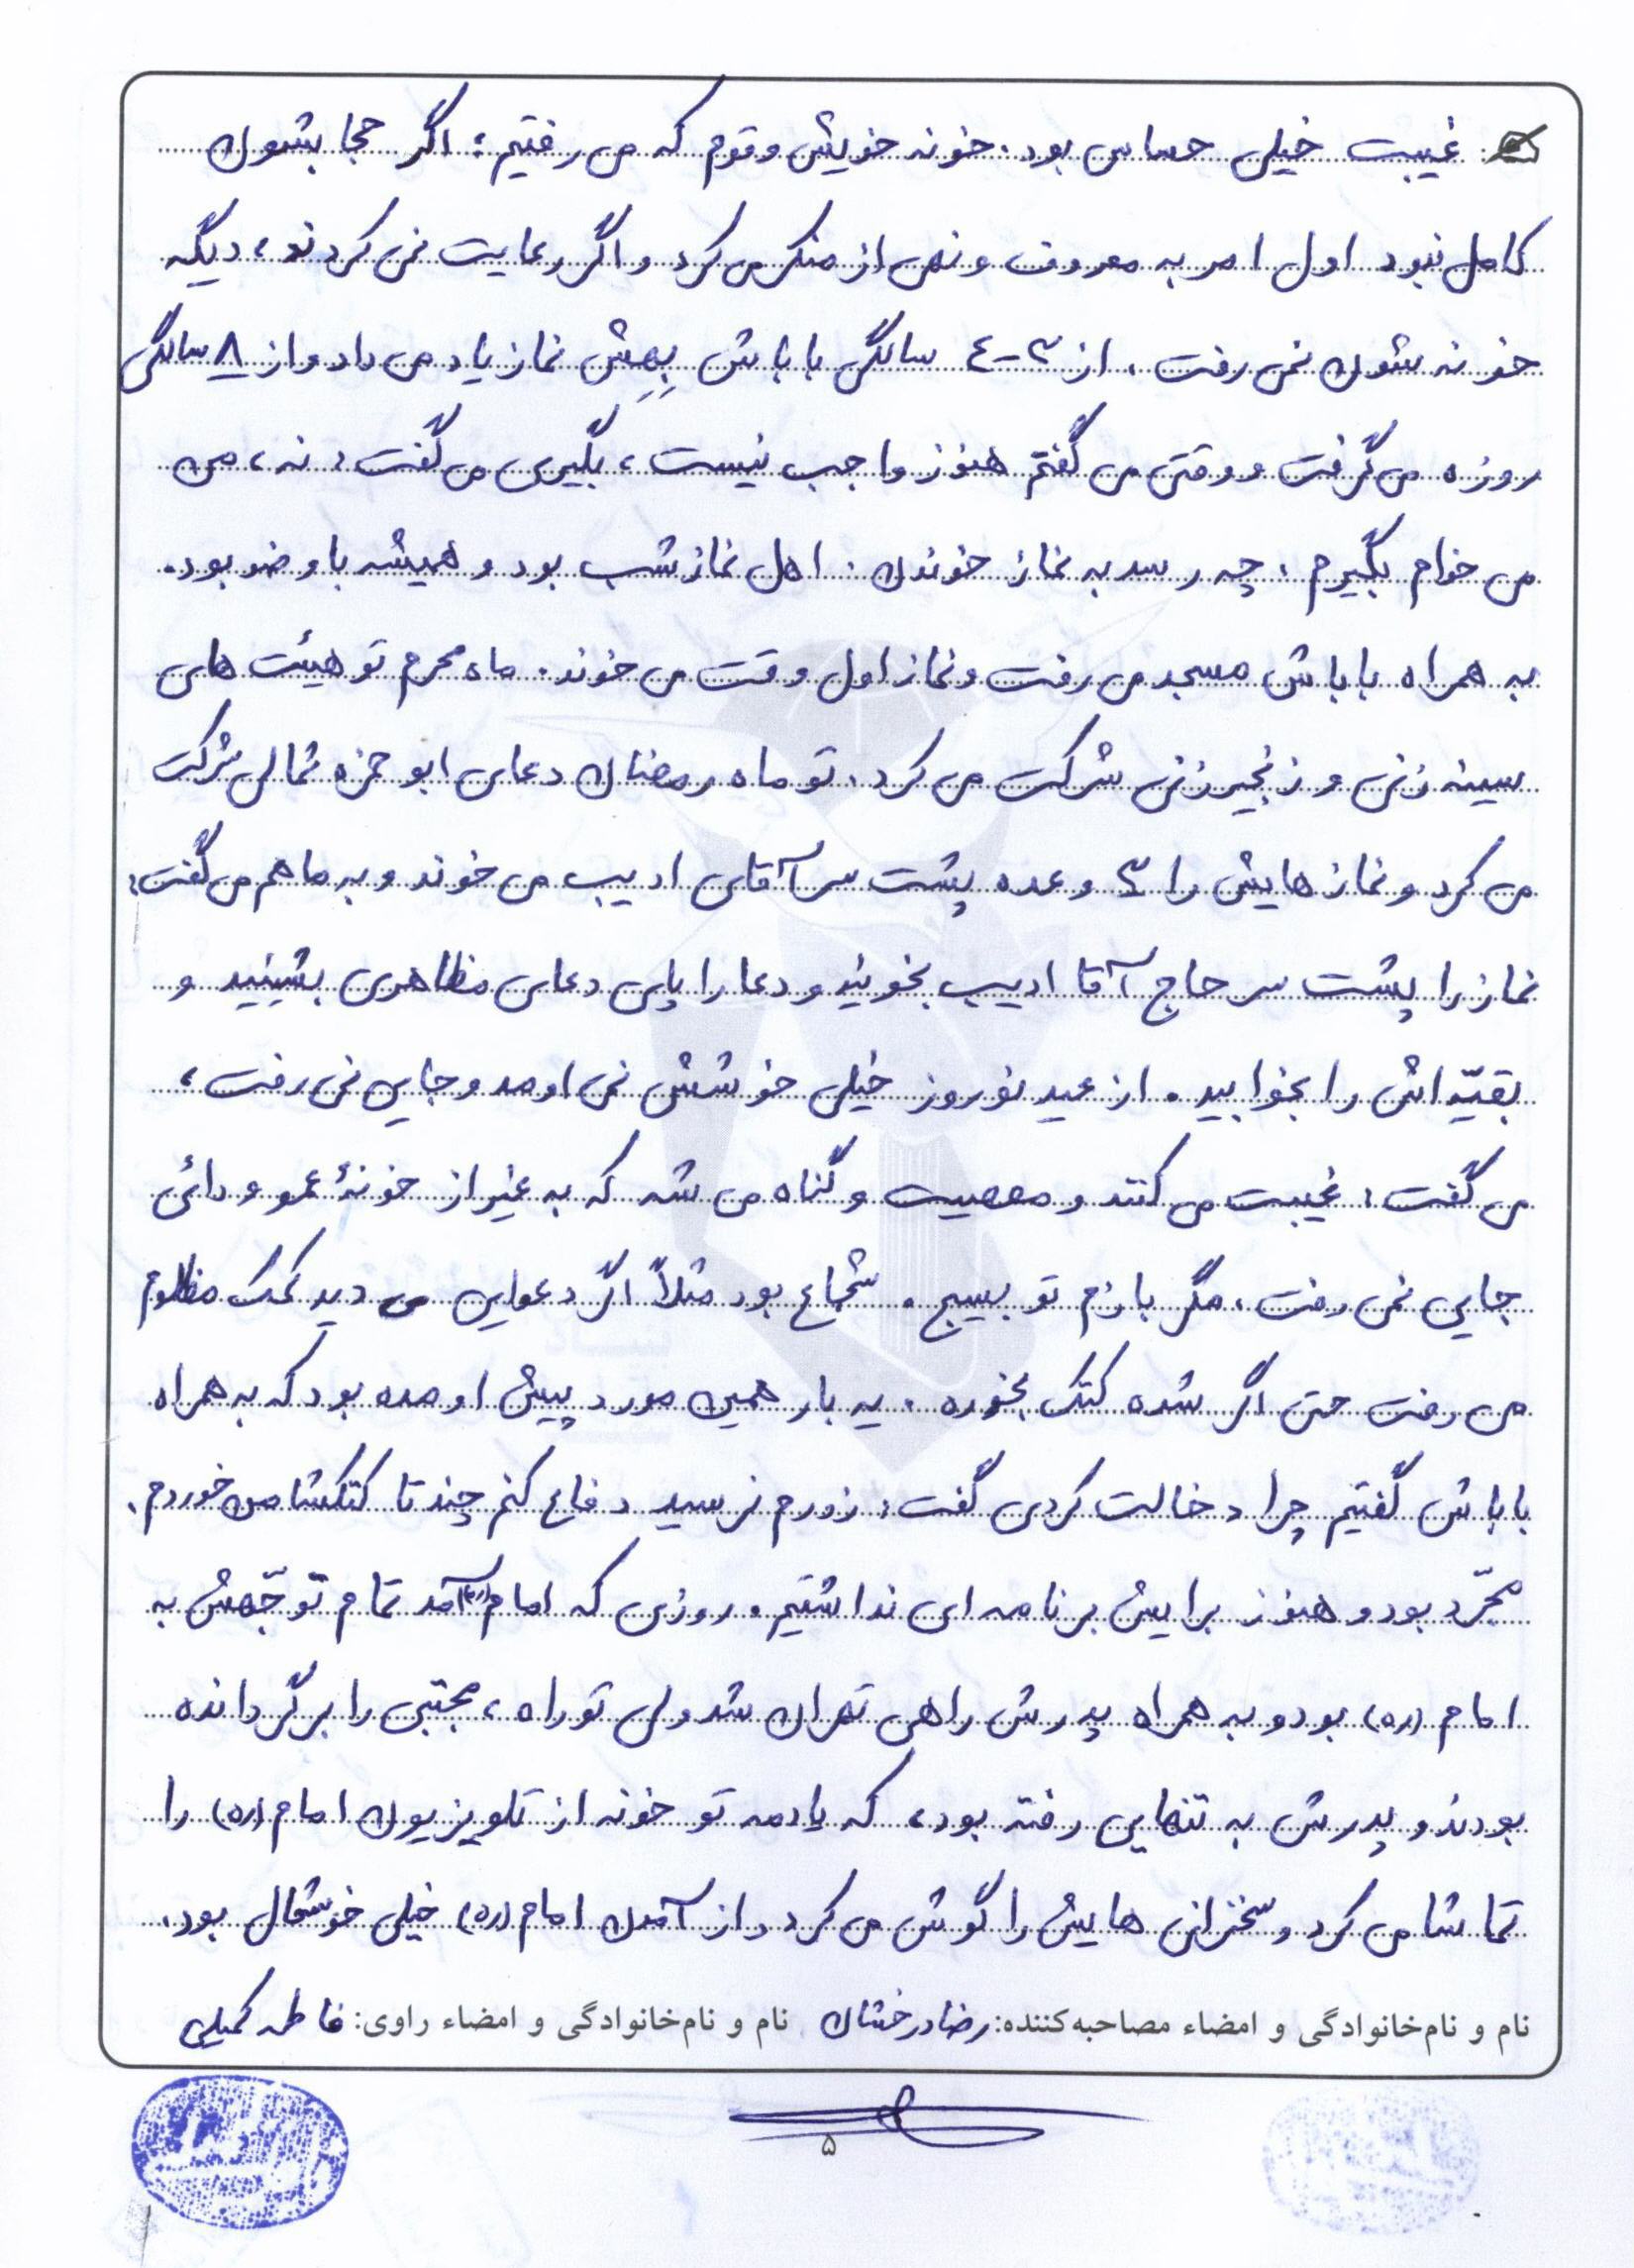 غیبت خیلی حساس بود. خونه خویش و قوم که می رفتیم؛ اگر حجابشون
کامل نبود اول امر به معروف و نهی از منکر می کرد و اگر رعایت نمی کردند، دیگه
خونه شون نمی رفت. از ٣-٤ سالگی باباش بِهِش نماز یاد می داد و از ٨ سالگی
روزه می گرفت و وقتی می گفتم هنوز واجب نیست، بگیری می گفت: نه، من
می خوام بگیرم. چه رسد به نماز خوندن. اهل نماز شب بود و همیشه با وضو بود.
به همراه باباش مسجد می رفت و نماز اول وقت می خوند. ماه محرم تو هیئت های
سینه زنی و زنجیرزنی شرکت می کرد. تو ماه رمضان دعای ابوحمزه ثمالی شرکت
می کرد و نمازهایش را ٣ وعده پشت سر آقای ادیب می خوند و به ما هم می گفت:
نماز را پشت سر حاج آقا ادیب بخونید و دعا را پای دعای مظاهری بشینید و
بقیّه اش را بخوابید. از عید نوروز خیلی خوشش نمی اومد و جایی نمی رفت،
می گفت: غیبت می کنند و معصیت و گناه می شه که به غیر از خونهٔ عمو و دائی
جایی نمی رفت، مگر بازم تو بسیج. شجاع بود مثلاً اگر دعوایی می دید کمک مظلوم
می رفت حتی اگر شده کتک بخوره. یه بار همین مورد پیش اومده بود که به همراه
باباش گفتیم چرا دخالت کردی گفت: زورم نرسید دفاع کنم چند تا کتکشا من خوردم.
مجرّد بود و هنوز برایش برنامه ای نداشتیم. روزی که امام (ره) آمد تمام توجّهش به
امام (ره) بود و به همراه پدرش راهی تهران شد ولی تو راه، مجتبی را برگردانده
بودند و پدرش به تنهایی رفته بود، که یادمه تو خونه از تلویزیون امام (ره) را
تماشا می کرد و سخنرانی هایش را گوش می کرد و از آمدن امام (ره) خیلی خوشحال بود.
نام و نام‌خانوادگی و امضاء مصاحبه‌کننده: رضا درخشان نام و نام‌خانوادگی و امضاء راوی: فاطمه کمیلی
۵